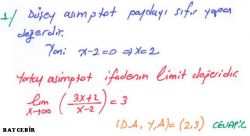 1-/ Düşey asimptot paydayı sıfır yapan
değerdir.
Yani x-2=0 ⇒ x=2
Yatay asimptot ifadenin limit değeridir.
lim x→∞ (3x+2 / x-2) = 3
(D.A, Y.A) = (2,3) CEVAP:C
BATCEBİR